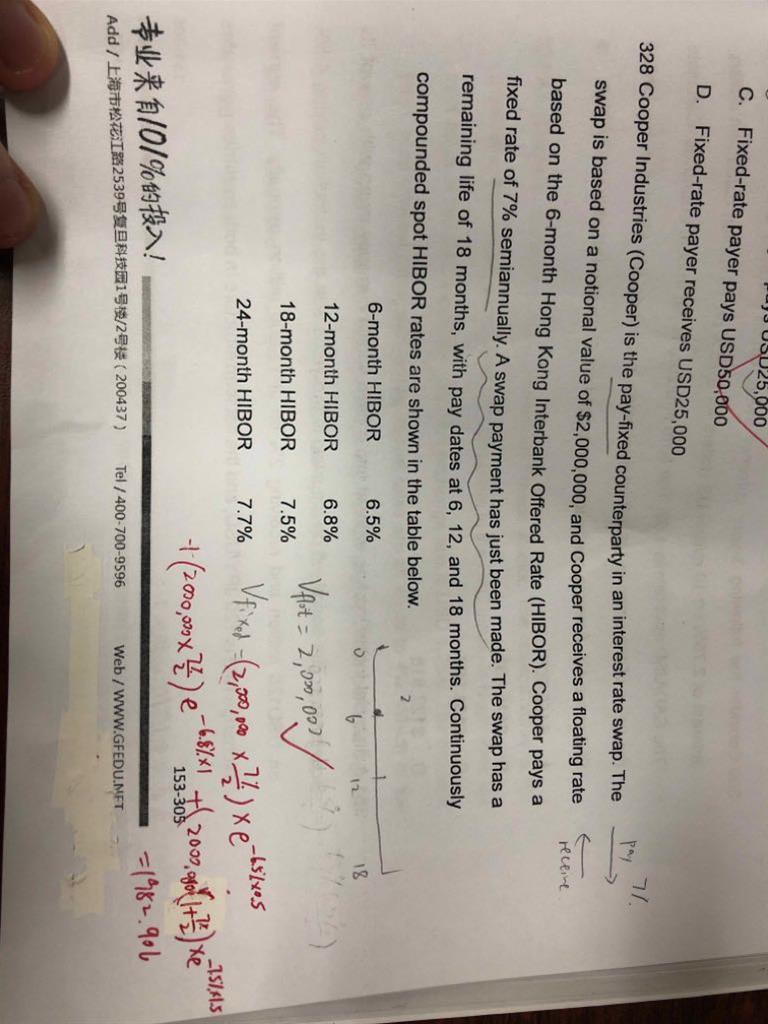 pays USD25,000
C. Fixed-rate payer pays USD50,000
D. Fixed-rate payer receives USD25,000
328 Cooper Industries (Cooper) is the pay-fixed counterparty in an interest rate swap. The
swap is based on a notional value of $2,000,000, and Cooper receives a floating rate
based on the 6-month Hong Kong Interbank Offered Rate (HIBOR). Cooper pays a
fixed rate of 7% semiannually. A swap payment has just been made. The swap has a
remaining life of 18 months, with pay dates at 6, 12, and 18 months. Continuously
compounded spot HIBOR rates are shown in the table below.
pay 7%
receive
6-month HIBOR 6.5%
12-month HIBOR 6.8%
18-month HIBOR 7.5%
24-month HIBOR 7.7%
0 6 12 18
2
Vflot = 2,000,000
Vfixed = (2,000,000 × 7%/2) × e^-6.5%×0.5
+ (2000,000 × 7%/2) e^-6.8%×1 + (2000,000 (1+7%/2) × e^-7.5%×1.5
= 1982.906
153-305
专业来自101%的投入!
Add / 上海市松花江路2539号复旦科技园1号楼/2号楼 ( 200437 ) Tel / 400-700-9596 Web / WWW.GFEDU.NET